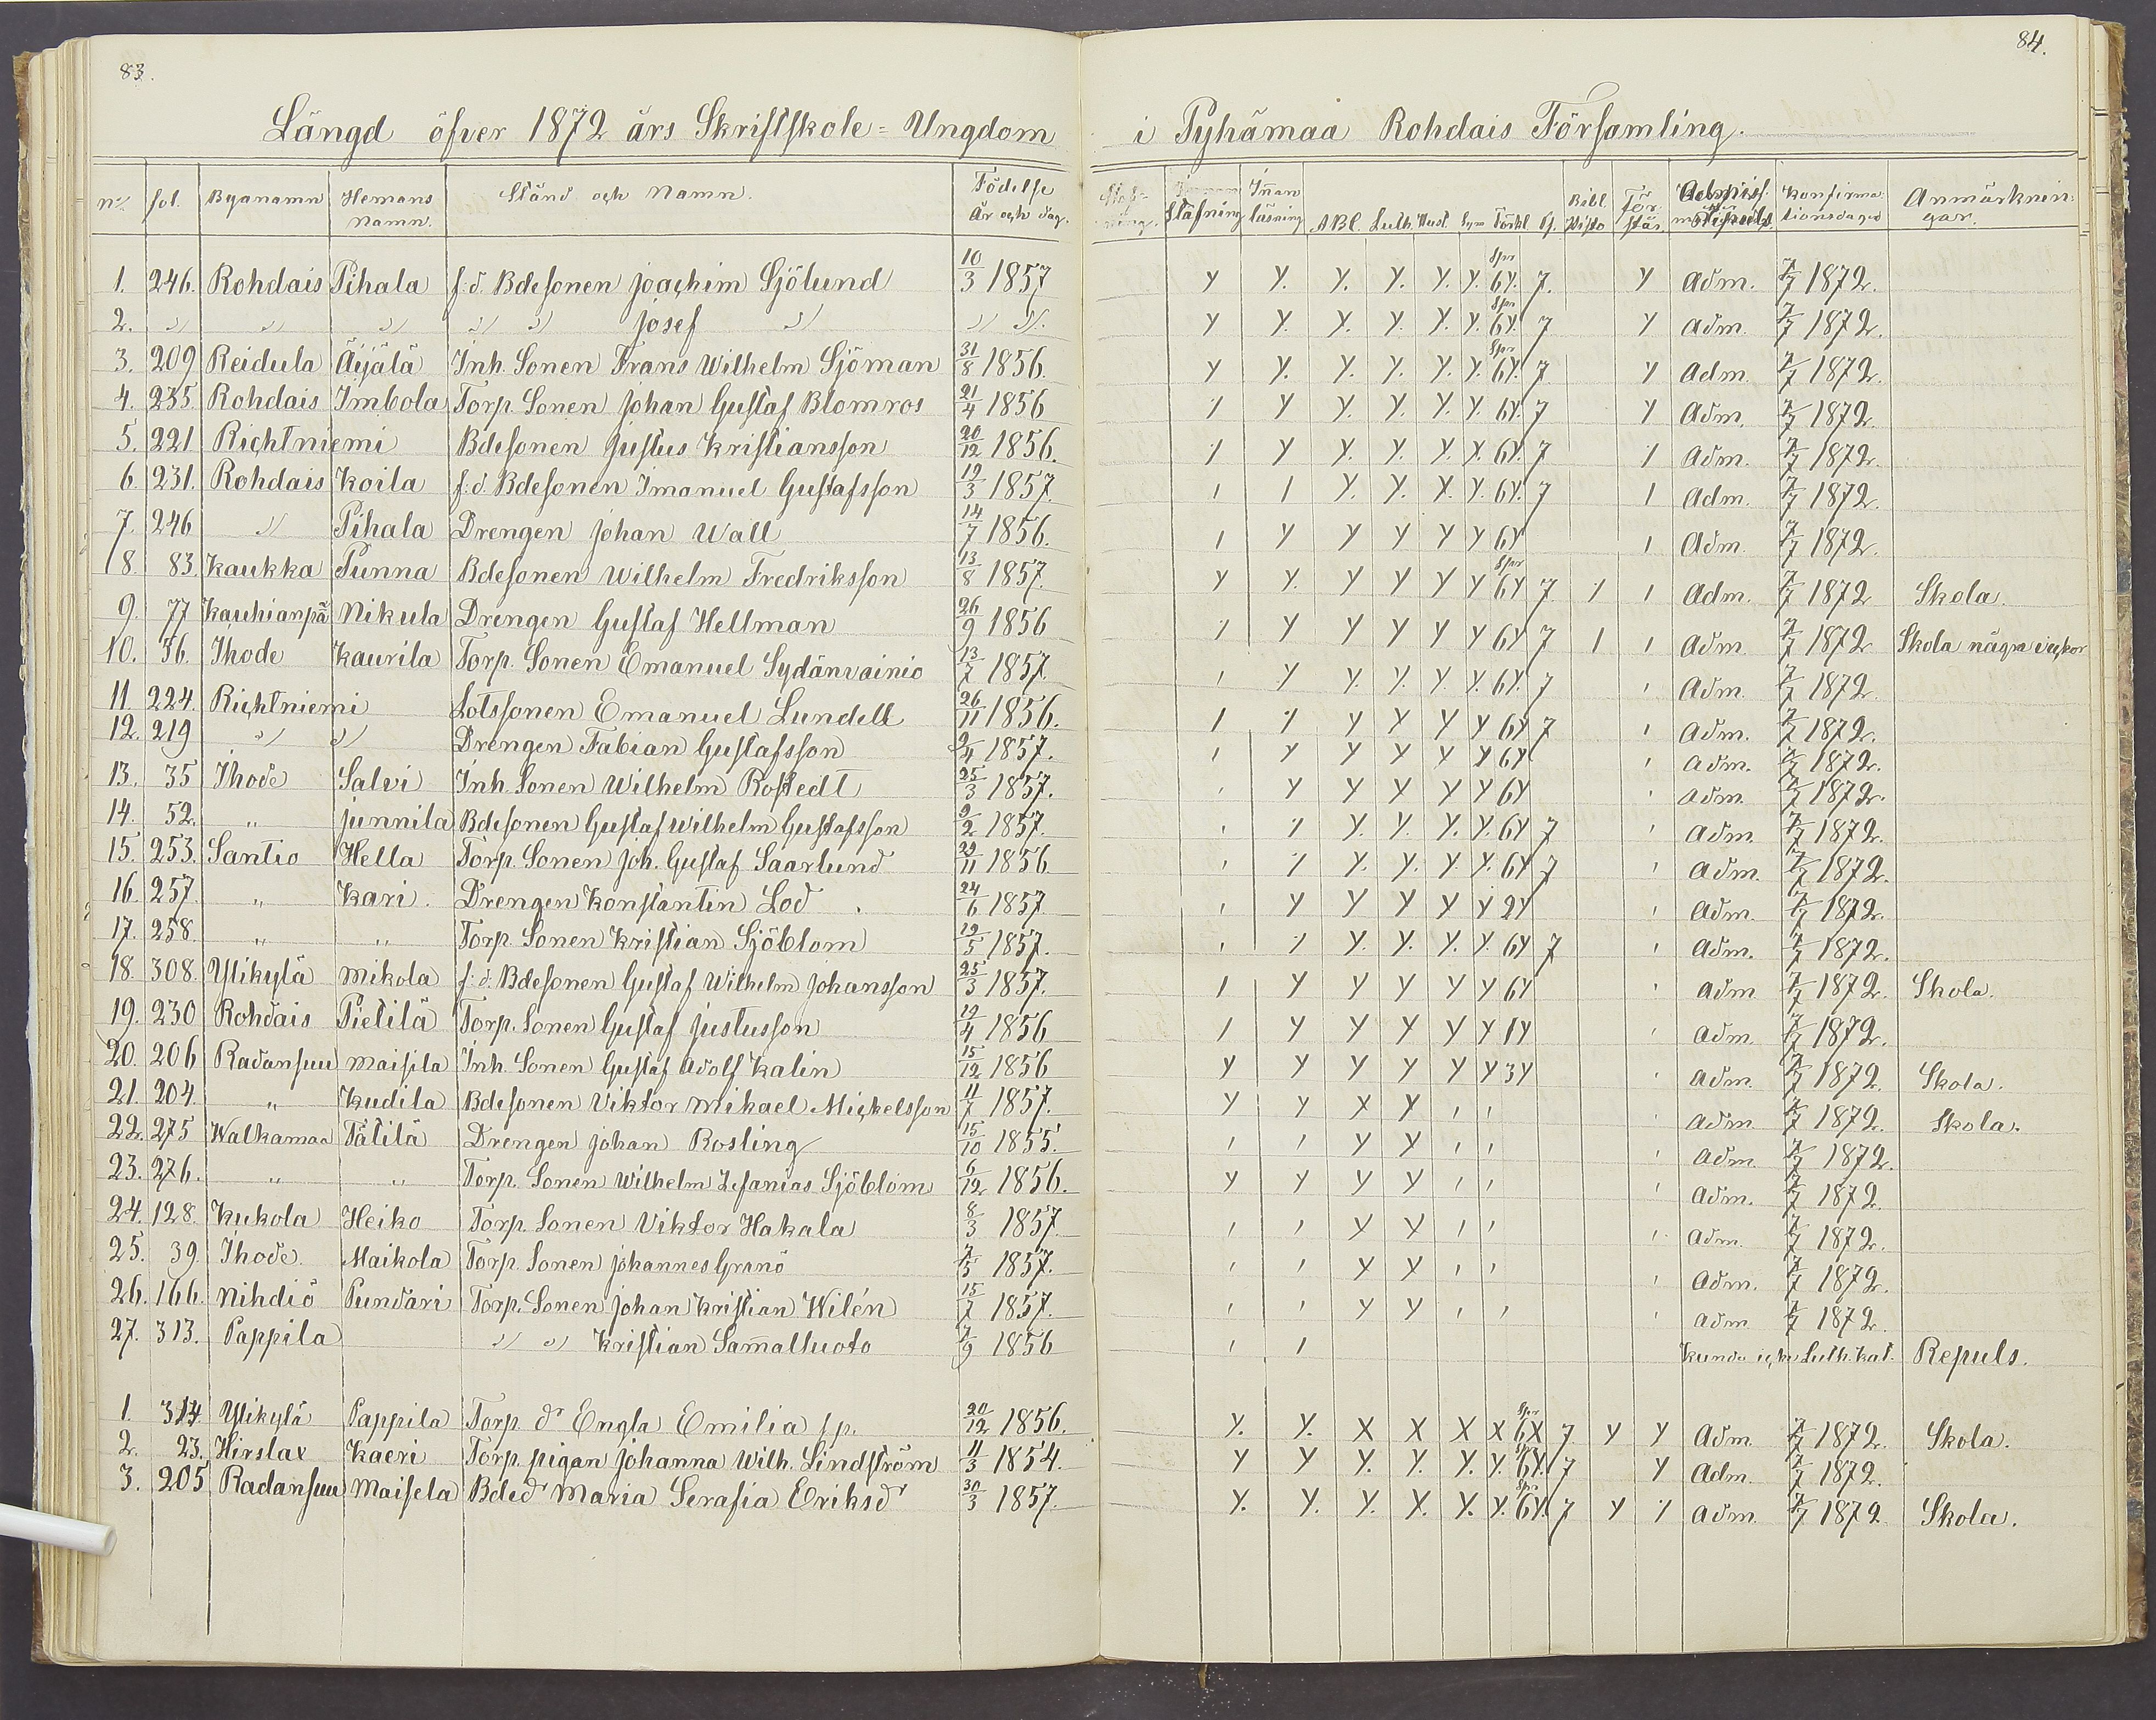 83.
84.
Längd öfver 1872 års Skriftskole=Ungdom i Pyhämaa Rohdais Församling.
No fol. Byanamn Hemans Namn. Stånd och Namn. Födelse År och dag. Stafning Innan läsning ABC. Luth. Hust. Sym Förkl Bibl. Histo För- står. Konfirma- tionsdagen Anmärknin- gar.
1. 246. Rohdais Pihala f:d. Bdesonen Joachim Sjölund 10/3 1857 Y Y. Y. Y. Y. Y. Spr 6Y. 7. Y Adm. 7/7 1872.
2. " " " " " Josef " " ". Y Y. Y. Y. Y. Y. Spr 6Y. 7 Y Adm. 7/7 1872.
3. 209 Reidula Äijälä Inh. Sonen Frans Wilhelm Sjöman 31/8 1856. Y Y. Y. Y. Y. Y. Spr 6Y. 7 Y Adm. 7/7 1872.
4. 235 Rohdais Imbola Torp. Sonen Johan Gustaf Blomros 21/4 1856 Y Y. Y. Y. Y. 6Y. 7 Y Adm. 7/7 1872.
5. 221 Richtniemi Bdesonen Justus Kristiansson 20/12 1856. Y Y. Y. Y. Y. 6Y. 7 Adm. 7/7 1872.
6. 231. Rohdais Koila f:d. Bdesonen Imanuel Gustafsson 19/3 1857. 1 1 Y. Y. Y. Y. 6Y. 7 1 Adm. 7/7 1872.
7. 246 " Pihala Drengen Johan Wall 14/7 1856. 1 Y Y Y Y Y 6Y 1 Adm. 7/7 1872.
8. 83. Kaukka Punna Bdesonen Wilhelm Fredriksson 13/8 1857. Y Y. Y Y Y Y Spr 6Y 7 1 1 Adm. 7/7 1872 Skola.
9. 77 Kauhianpä Nikula Drengen Gustaf Hellman 26/9 1856 Y Y Y Y Y 6Y 7 1 1 Adm. 7/7 1872 Skola några veckor
10. 36. Ihode Kaurila Torp. Sonen Emanuel Sydänvainio 13/7 1857. ' Y Y. Y. Y. Y. 6Y. 7 ' Adm. 7/7 1872.
11. 224. Richtniemi Lotssonen Emanuel Lundell 26/11 1856. 1 Y Y Y Y 6Y 7 ' Adm. 7/7 1872.
12. 219 " " Drengen Fabian Gustafsson 9/4 1857. ' Y Y Y Y Y 6Y ' Adm. 7/7 1872.
13. 35 Ihode Salvi Inh. Sonen Wilhelm Rostedt 25/3 1857. ' Y Y Y Y Y 6Y ' Adm. 7/7 1872.
14. 52. " Junnila Bdesonen Gustaf Wilhelm Gustafsson 9/2 1857. ' Y. Y. Y. Y. 6Y 7 ' Adm. 7/7 1872.
15. 253. Santio Hella Torp. Sonen Joh. Gustaf Saarlund 29/11 1856. ' Y. Y. Y. Y. 6Y 7 ' Adm. 7/7 1872.
16. 257. " Kari. Drengen Konstantin Lod 24/6 1857. ' Y Y Y Y Y 2Y ' Adm. 7/7 1872.
17. 258. " " Torp. Sonen Kristian Sjöblom 19/5 1857. ' Y. Y. Y. Y. 6Y 7 ' Adm. 7/7 1872.
18. 308. Ylikylä Mikola f:d. Bdesonen Gustaf Wilhelm Johansson 25/3 1857. 1 Y Y Y Y Y 6Y ' Adm 7/7 1872. Skola.
19. 230 Rohdais Pietilä Torp. Sonen Gustaf Justusson 19/4 1856 1 Y Y Y Y Y 1Y ' Adm. 7/7 1872.
20. 206 Radansuu Maisila Inh. Sonen Gustaf Adolf Kalin 15/12 1856 Y Y Y Y Y Y 3Y ' Adm. 7/7 1872. Skola.
21. 204 " Kudila Bdesonen Viktor Mikael Mickelsson 11/7 1857. Y Y X Y ' ' Adm. 7/7 1872. Skola.
22. 275 Walkamaa Tätilä Drengen Johan Rosling 15/10 1855. ' ' Y Y ' ' ' Adm. 7/7 1872.
23. 276. " " Torp. Sonen Wilhelm Zefanias Sjöblom 6/12 1856. Y Y Y Y ' ' ' Adm. 7/7 1872.
24. 128. Kukola Heiko Torp. Sonen Viktor Hakala 8/3 1857. ' ' Y Y ' ' ' Adm. 7/7 1872.
25. 39. Ihode. Maikola Torp. Sonen Johannes Granö 7/5 1857. ' ' Y Y ' ' ' Adm. 7/7 1872.
26. 166. Nihdiö Pundari Torp. Sonen Johan Kristian Wilén 15/7 1857. ' ' Y Y ' ' ' Adm. 7/7 1872.
27. 313. Pappila " " Kristian Sam̄alluoto 7/9 1856 ' 1 Kunde icke Luth. Kat. Repuls.
1. 314 Ylikylä Pappila Torp. dr Engla Emilia sp. 20/12 1856. Y. Y. X X X X Spr 6X 7 Y Y Adm. 7/7 1872. Skola.
2. 23. Hirslax Kaeri Torp. pigan Johanna Wilh. Lindström 11/3 1854. Y Y Y. Y. Y. Y. Spr 6Y. 7 Y Adm. 7/7 1872.
3. 205 Radansuu Maisela Bdedr Maria Serafia Eriksdr 30/3 1857. Y. Y. Y. Y. Y. Y. Spr 6Y. 7 Y Adm. 7/7 1872 Skola.